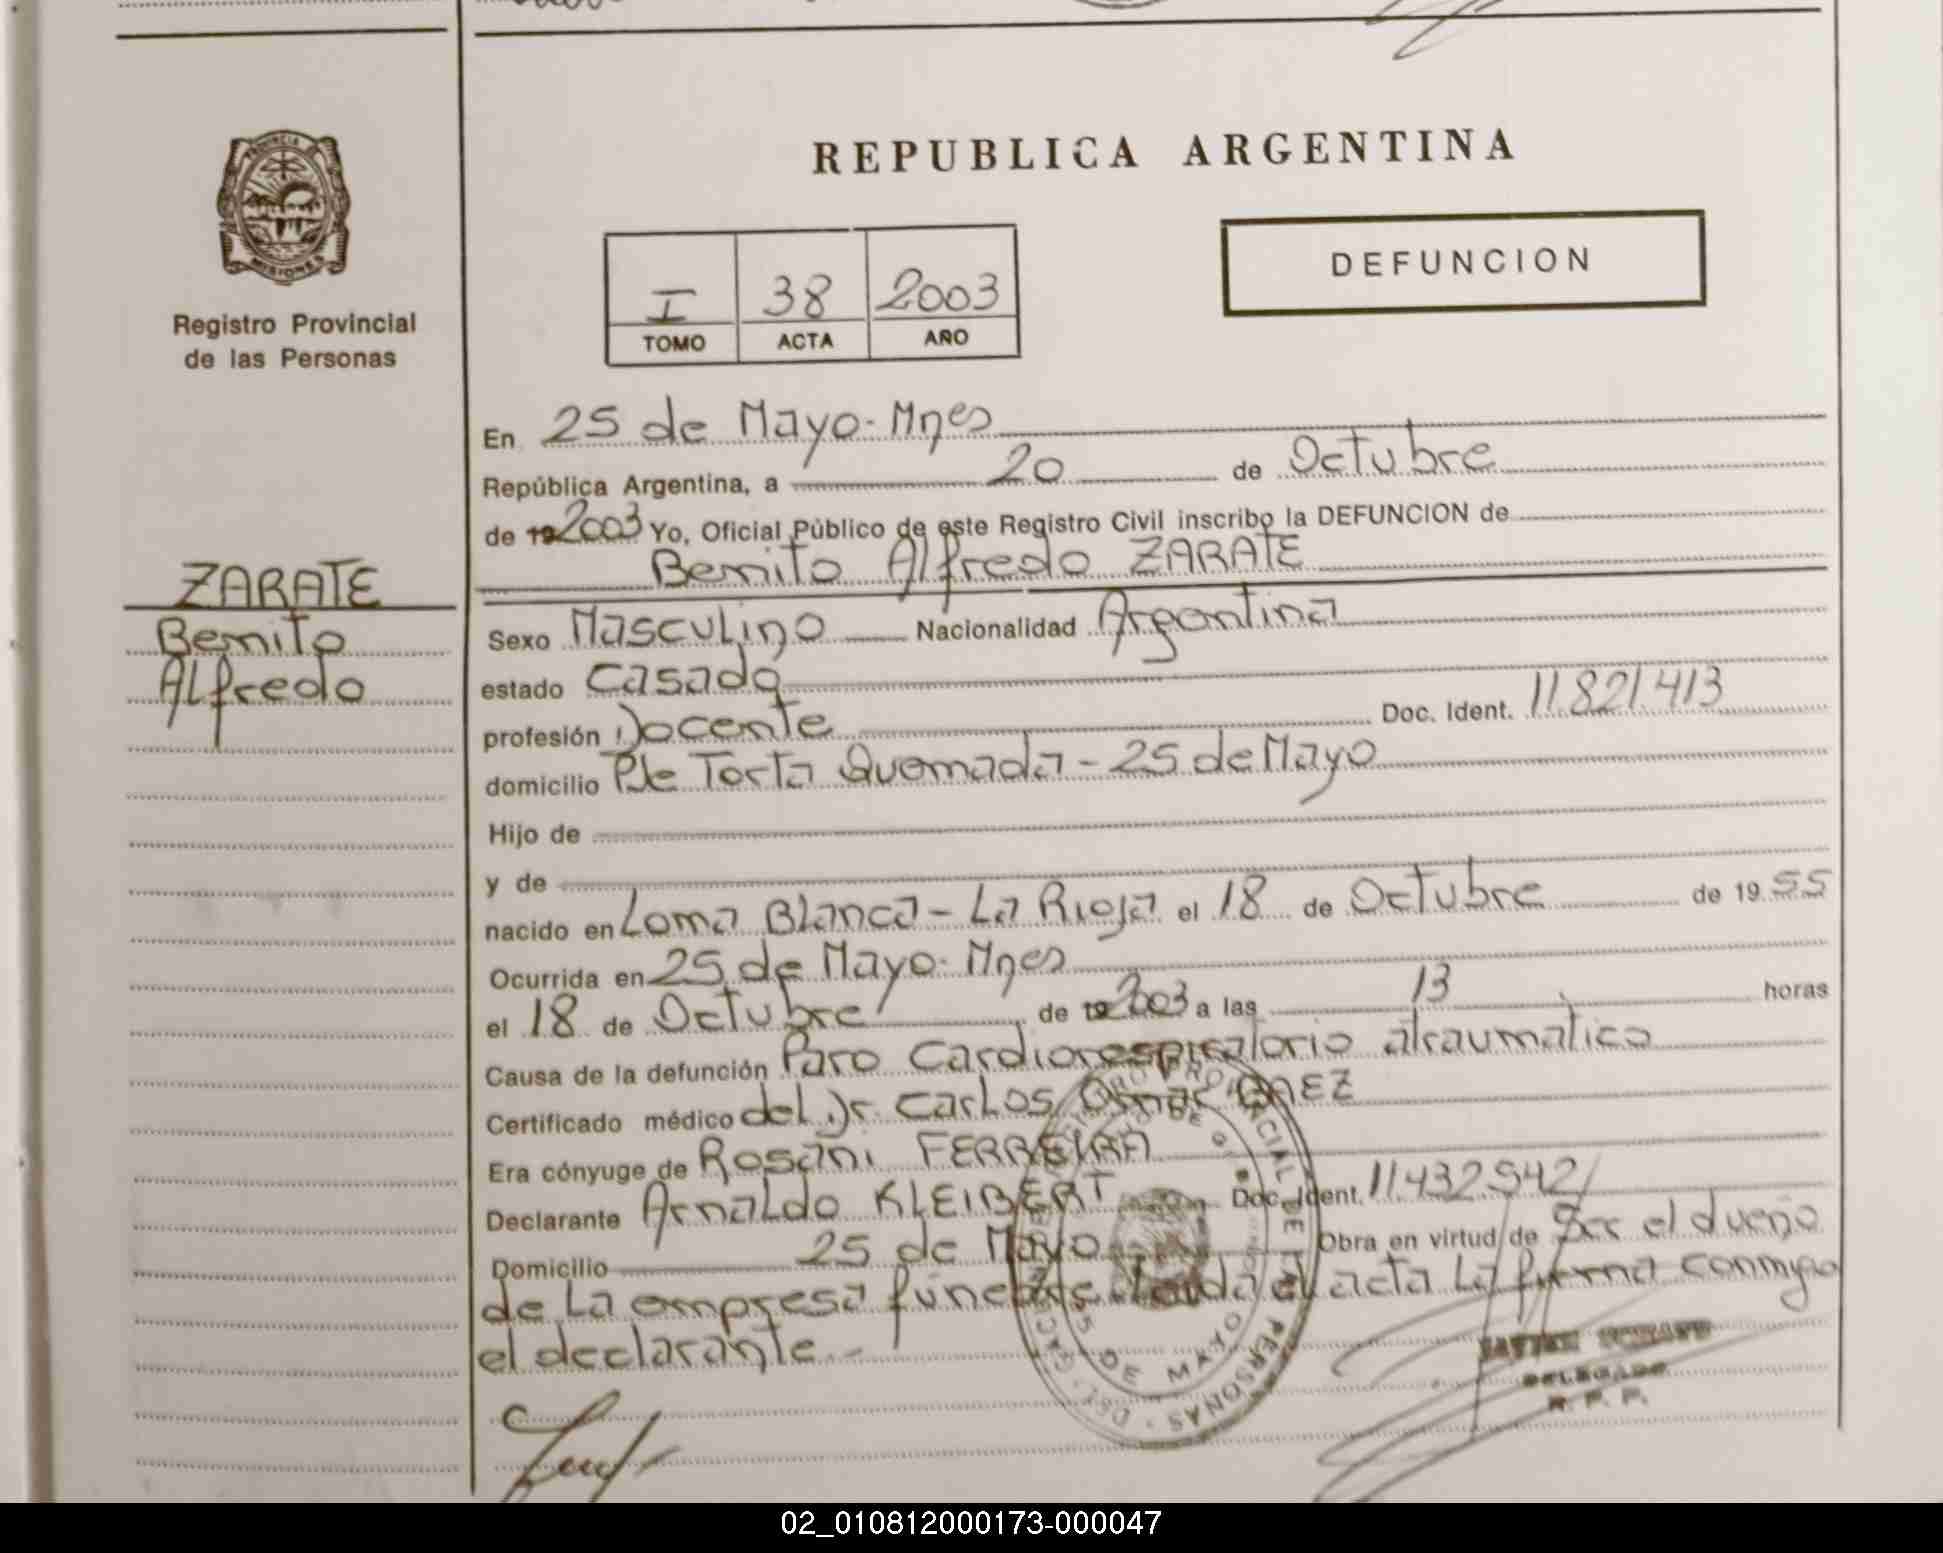 REPUBLICA ARGENTINA
PROVINCIA DE
MISIONES
Registro Provincial
de las Personas
I 38 2003
TOMO ACTA AÑO
DEFUNCION
En 25 de Mayo-Mnes
República Argentina, a 20 de Octubre
de 19 2003 Yo, Oficial Público de este Registro Civil inscribo la DEFUNCION de
Benito Alfredo ZARATE
ZARATE
Benito
Alfredo
Sexo Masculino Nacionalidad Argentina
estado Casado
profesión Docente Doc. Ident. 11.821.413
domicilio Pje Torta Quemada - 25 de Mayo
Hijo de
y de
nacido en Loma Blanca - La Rioja el 18 de Octubre de 19 55
Ocurrida en 25 de Mayo-Mnes
el 18 de Octubre de 19 2003 a las 13 horas
Causa de la defunción Paro Cardiorespiratorio atraumatico
Certificado médico del Dr. Carlos Omar BAEZ
Era cónyuge de Rosani FERREIRA
Declarante Arnaldo KLEIBERT Doc. Ident. 11432942
Domicilio 25 de Mayo Obra en virtud de Ser el dueño
de La empresa fúnebre. Leida el acta La firma conmigo
el declarante -
REGISTRO PROVINCIAL DE LAS PERSONAS
25 DE MAYO
DELEGADO
R. P. P.
02_010812000173-000047